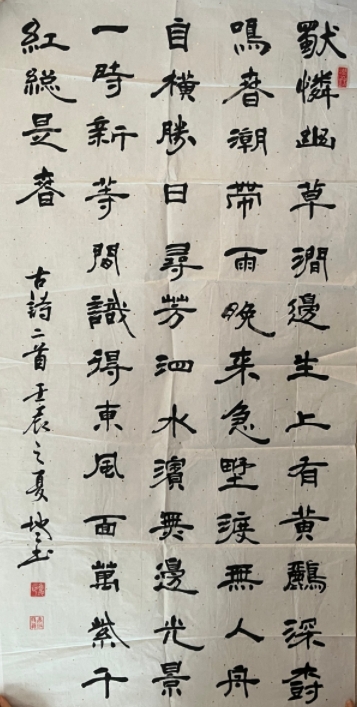 獨憐幽草澗邊生上有黃鸝深樹
鳴春潮帶雨晚来急墅渡無人舟
自橫勝日尋芳泗水濱無邊光景
一時新等間識得東風面萬紫千
紅総是春
古詩二首壬辰之夏